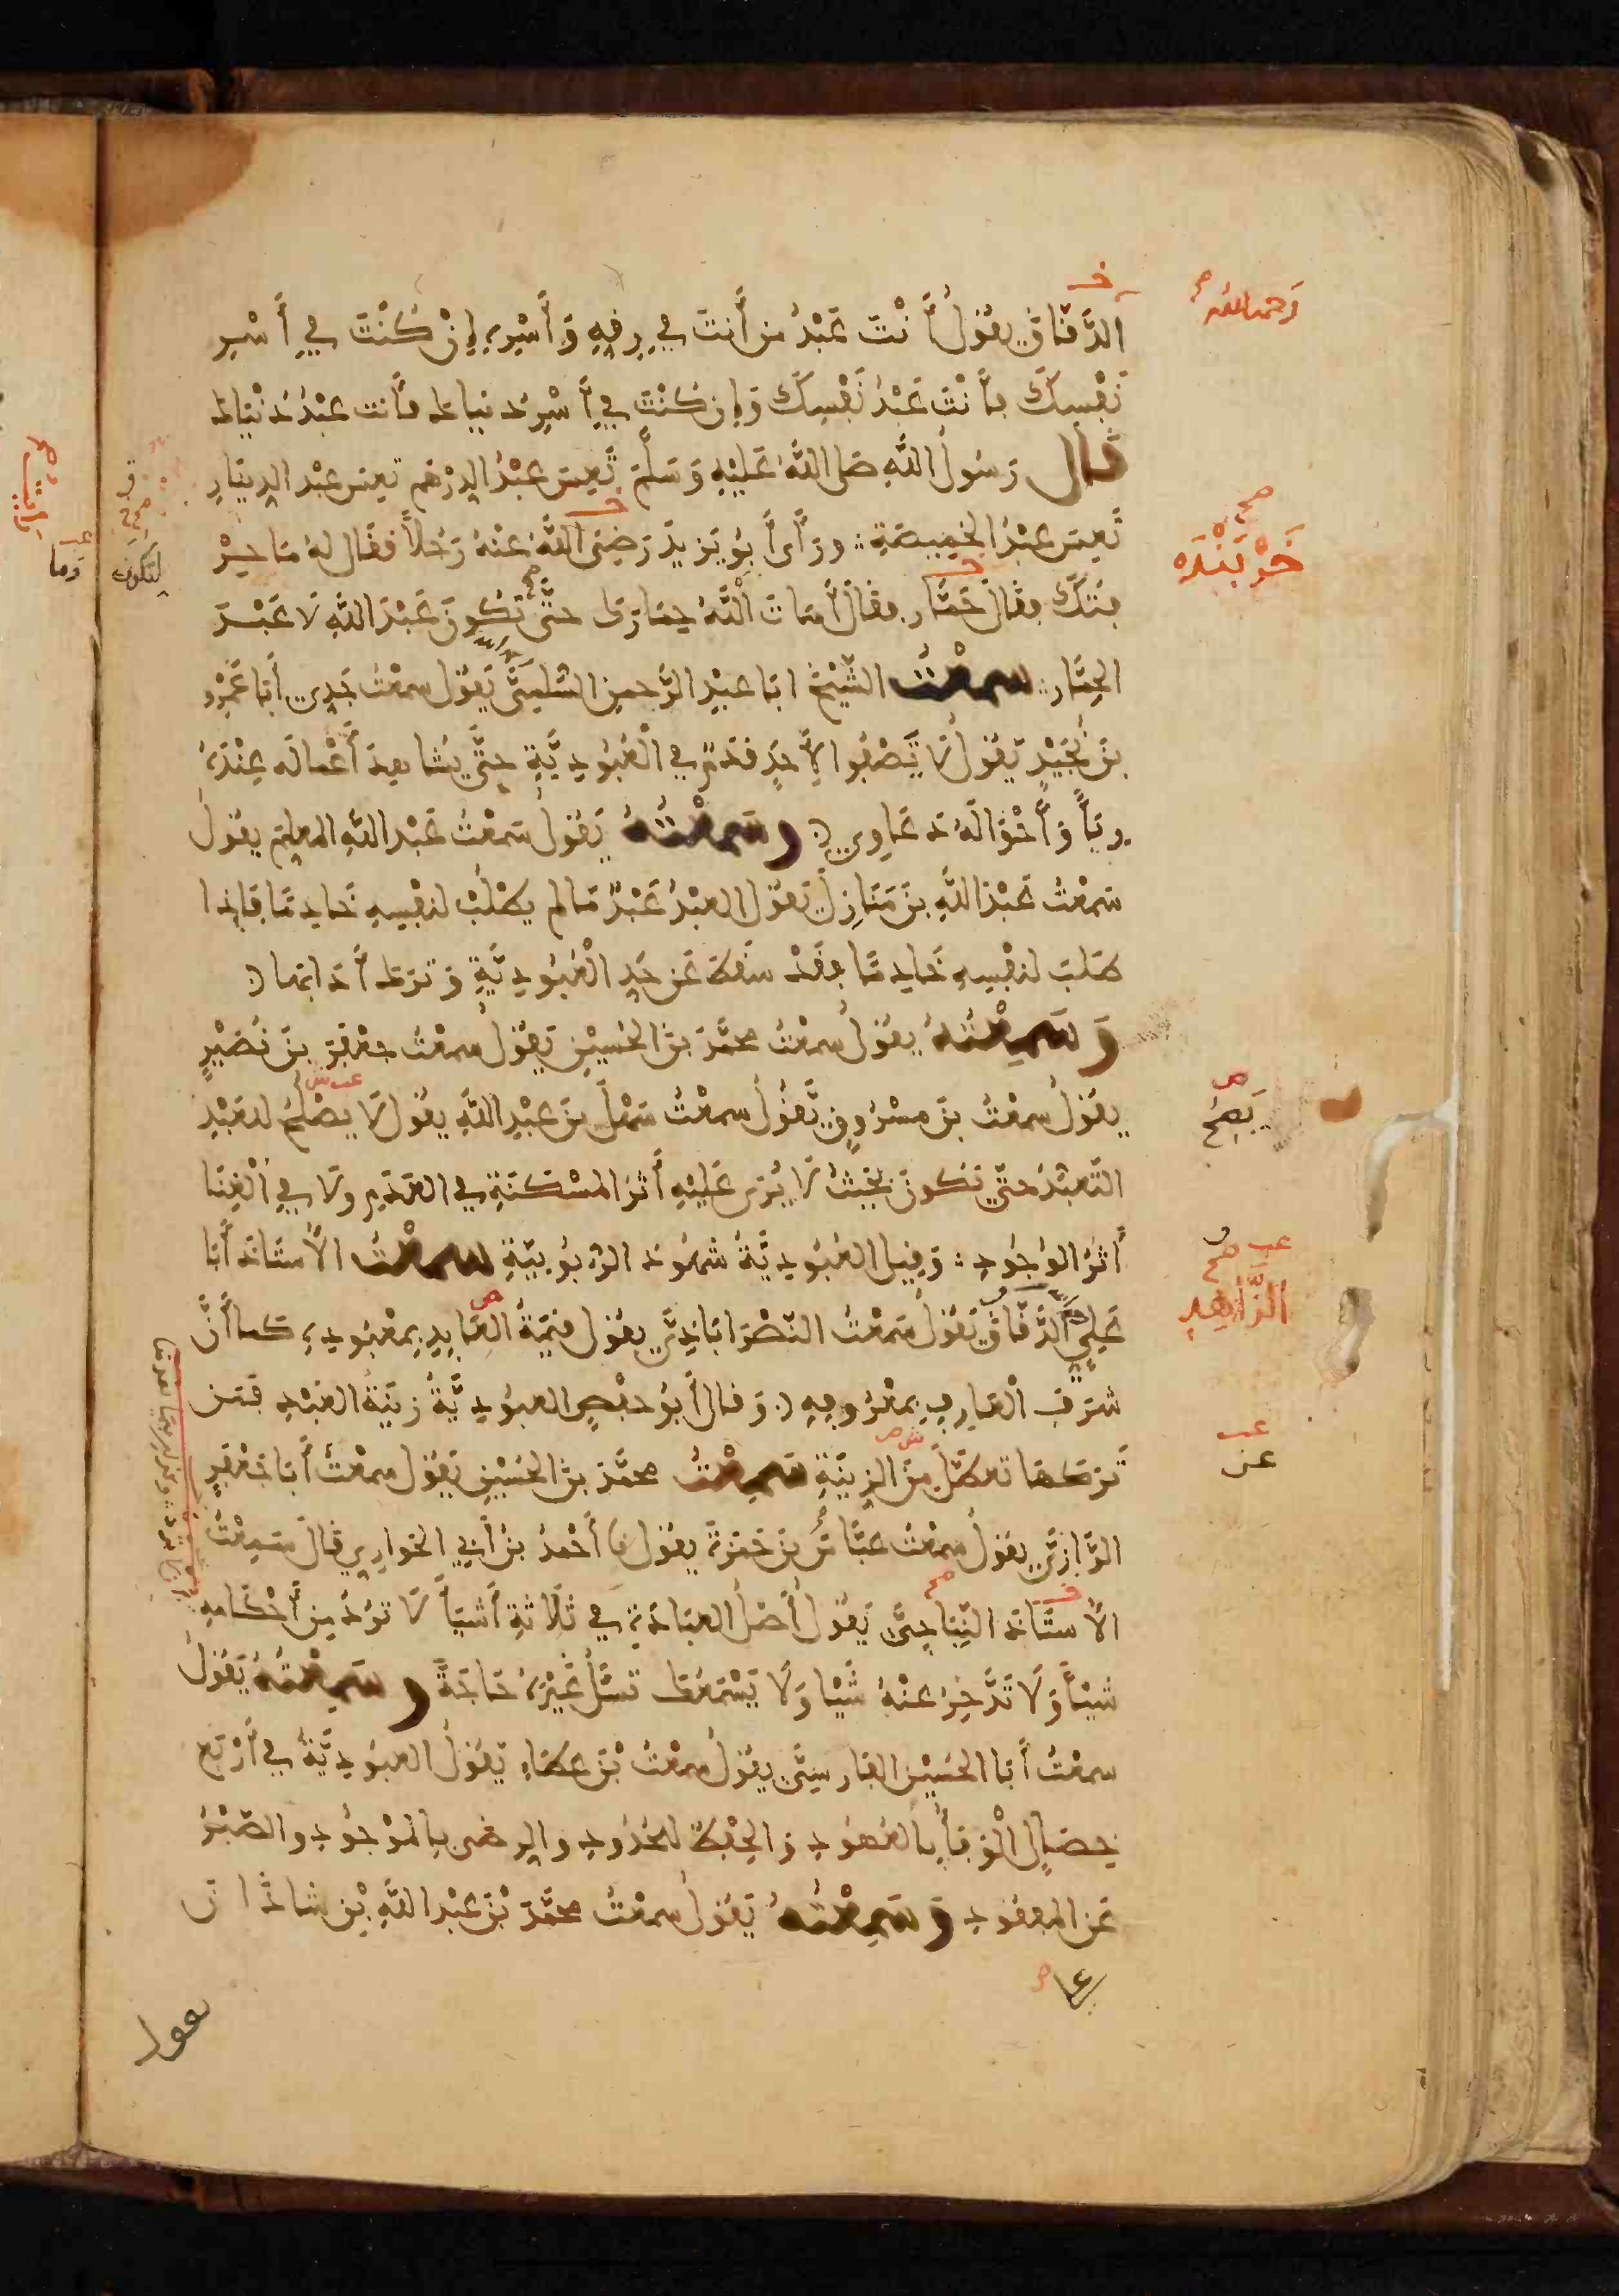 رحمه الله
الدقاق يقول أنت عبد من أنت في رقه وأسره إن كنت في أسر
نفسك فأنت عبد نفسك وإن كنت في أسر دنياك فأنت عبد دنياك
قال رسول الله صلى الله عليه وسلم تعس عبد الدرهم تعس عبد الدينار
تعس عبد الخميصة ورأى أبو يزيد رضي الله عنه رجلا فقال له ما حر
خربنده
فتك فقال خمار فقال أمات الله حمارك حتى تكون عبد الله لا عبد
لتكون
الحمار سمعت الشيخ ابا عبد الرحمن السلمي يقول سمعت جدي أبا عمرو
بن نجيد يقول لا تصفوا لأحد قدم في العبودية حتى يشاهد أعماله عنده
رياً وأحواله دعاوي وسمعته يقول سمعت عبد الله المعلم يقول
سمعت عبد الله بن منازل يقول العبد عبد ما لم يطلب لنفسه خادما فإذا
طلب لنفسه خادما فقد سقط عن حد العبودية وترك أدابها
وسمعته يقول سمعت محمد بن الحسين يقول سمعت جعفر بن نصير
يقول سمعت بن مسروق يقول سمعت سهل بن عبد الله يقول لا يصلح للعبد
يصح
التعبد حتى تكون بحيث لا يرى عليه أثر المسكنة في العدم ولا في الغنا
أثر الوجود وقيل العبودية شهود الربوبية سمعت الأستاذ أبا
علي الدقاق يقول سمعت النصراباذي يقول قيمة العابد بمعبوده كما أن
الزاهد
شرف العارف بمعروفه وقال أبو حفص العبودية زينة العبد فمن
تركها تعطل من الزينة سمعت محمد بن الحسين يقول سمعت أبا جعفر
عن
الرازي يقول سمعت عباس بن حمزة يقول نا أحمد بن أبي الحواري قال سمعت
الأستاذ النباجي يقول أصل العبادة في ثلاثة أشيا لا ترد من أحكامه
شيئا ولا تدخر عنه شيئا ولا يسمعك تسئل غيره حاجة وسمعته يقول
سمعت أبا الحسين الفارسي يقول سمعت بن عطاء يقول العبودية في أربع
خصال الوفاء بالعهود والحفظ للحدود والرضى بالموجود والصبر
عن المفقود وسمعته يقول سمعت محمد بن عبد الله بن شاذان